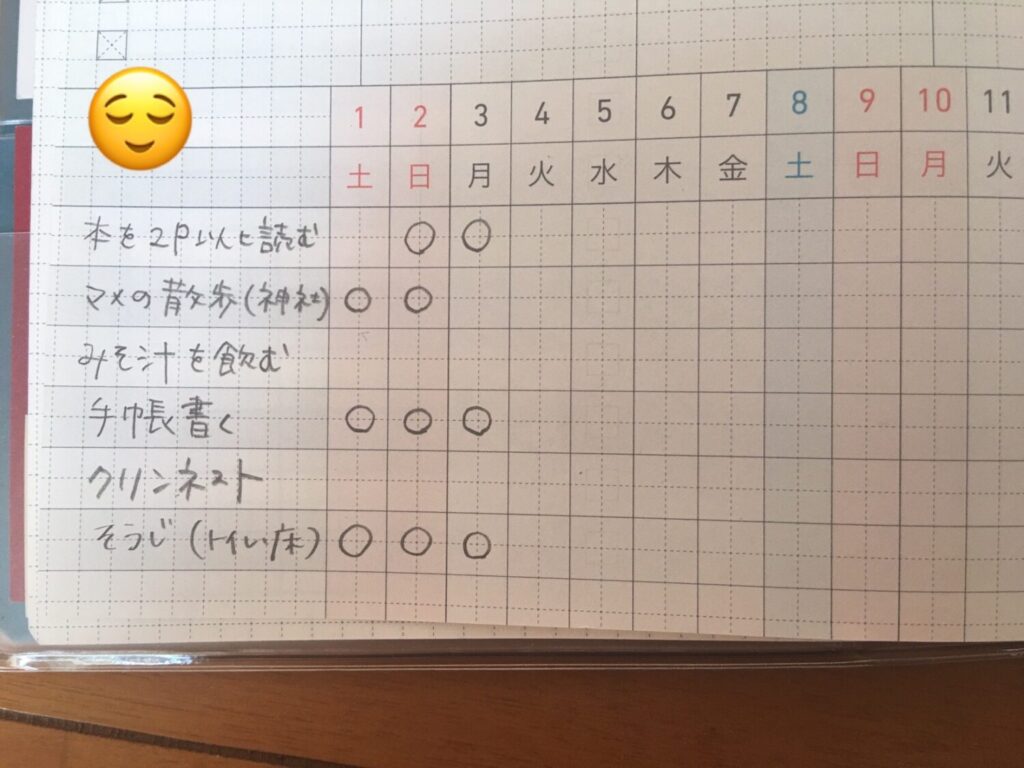 1 2 3 4 5 6 7 8 9 10 11
土 日 月 火 水 木 金 土 日 月 火
本を2P以上読む ○ ○
マメの散歩(神社) ○ ○
みそ汁を飲む
手帳書く ○ ○ ○
クリンネスト
そうじ(トイレ床) ○ ○ ○